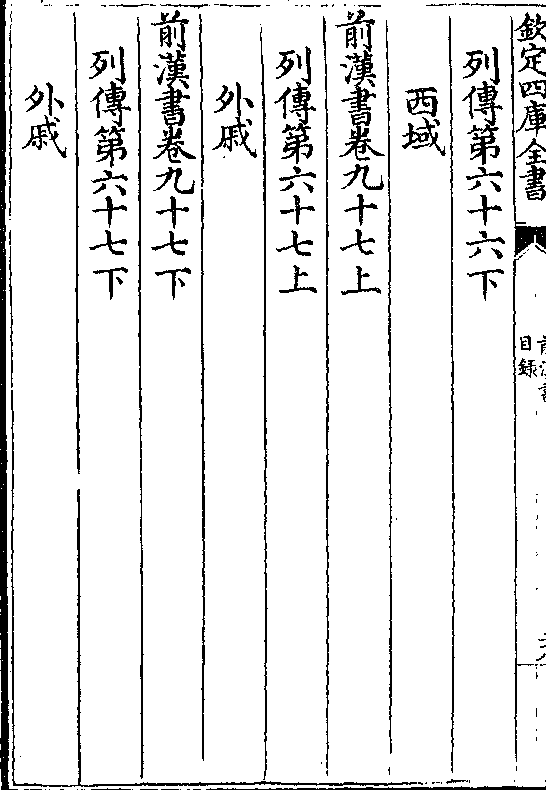 欽定四庫全書
前漢書
目録
列傳第六十六下
西域
前漢書卷九十七上
列傳第六十七上
外戚
前漢書卷九十七下
列傳第六十七下
外戚